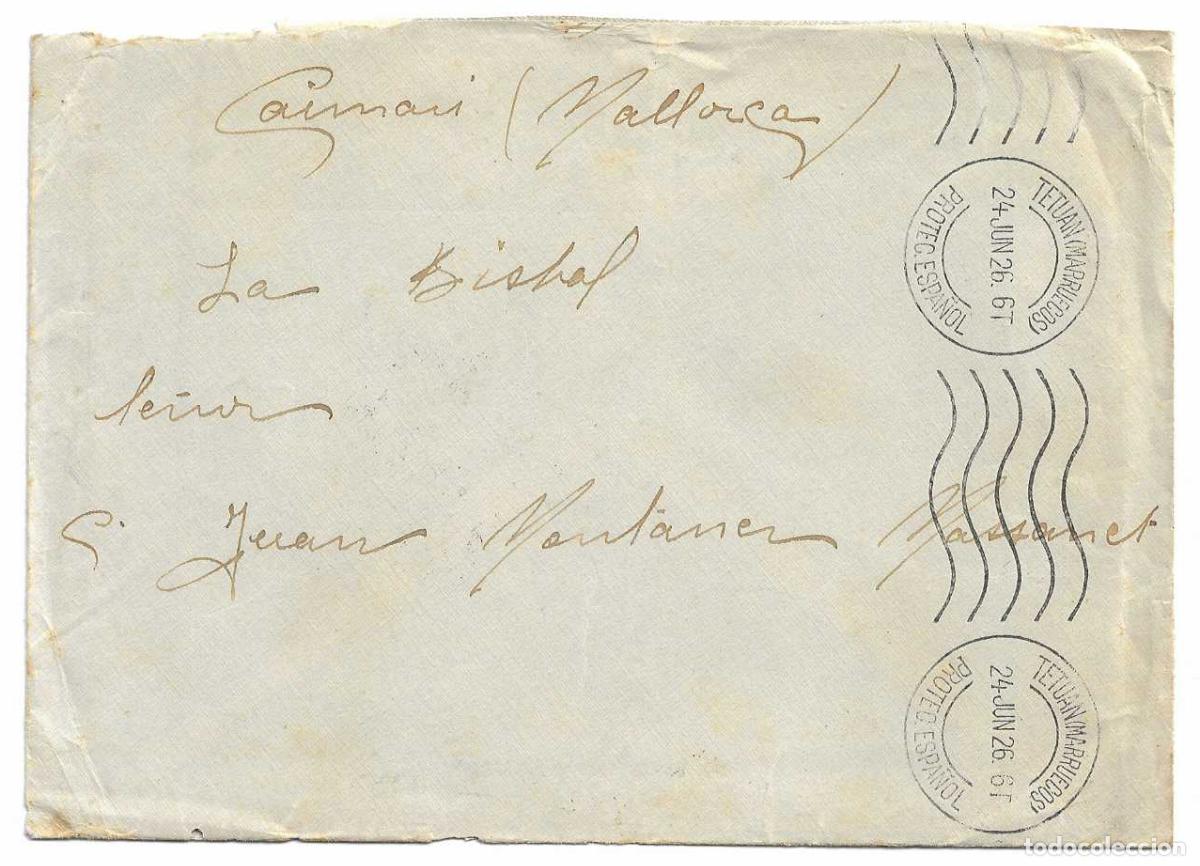 Caimari (Mallorca)
La Bisbal
Señor
Juan Montaner Massanet
TETUAN (MARRUECOS)
24 JUN 26. 6T
PROTEC. ESPAÑOL
TETUAN (MARRUECOS)
24 JUN 26. 6T
PROTEC. ESPAÑOL
todocoleccion